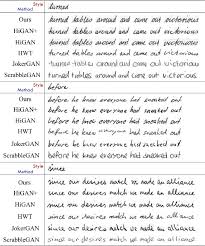 Style
Method
turned
Ours turned tables around and came out victorious
HiGAN+ turned tables around and came out victorious
HiGAN turned tables around and came out victorious
HWT turned tables around and come out victorious
JokerGAN turned tables around and came out victorious
ScrabbleGAN turned tables around and came out victorious
Style
Method
before
Ours before he knew everyone had sneaked out
HiGAN+ before he knew everyone had sneaked out
HiGAN before he knew everyone had sneaked out
HWT before he knew everyone had sneaked out
JokerGAN before he knew everyone had sneaked out
ScrabbleGAN before he knew everyone had sneaked out
Style
Method
since
Ours since our desires match we made an alliance
HiGAN+ since our desires match we made an alliance
HiGAN since our desires match we made an alliance
HWT since our desires match we made an alliance
JokerGAN since our desires match we made an alliance
ScrabbleGAN since our desires match we made an alliance